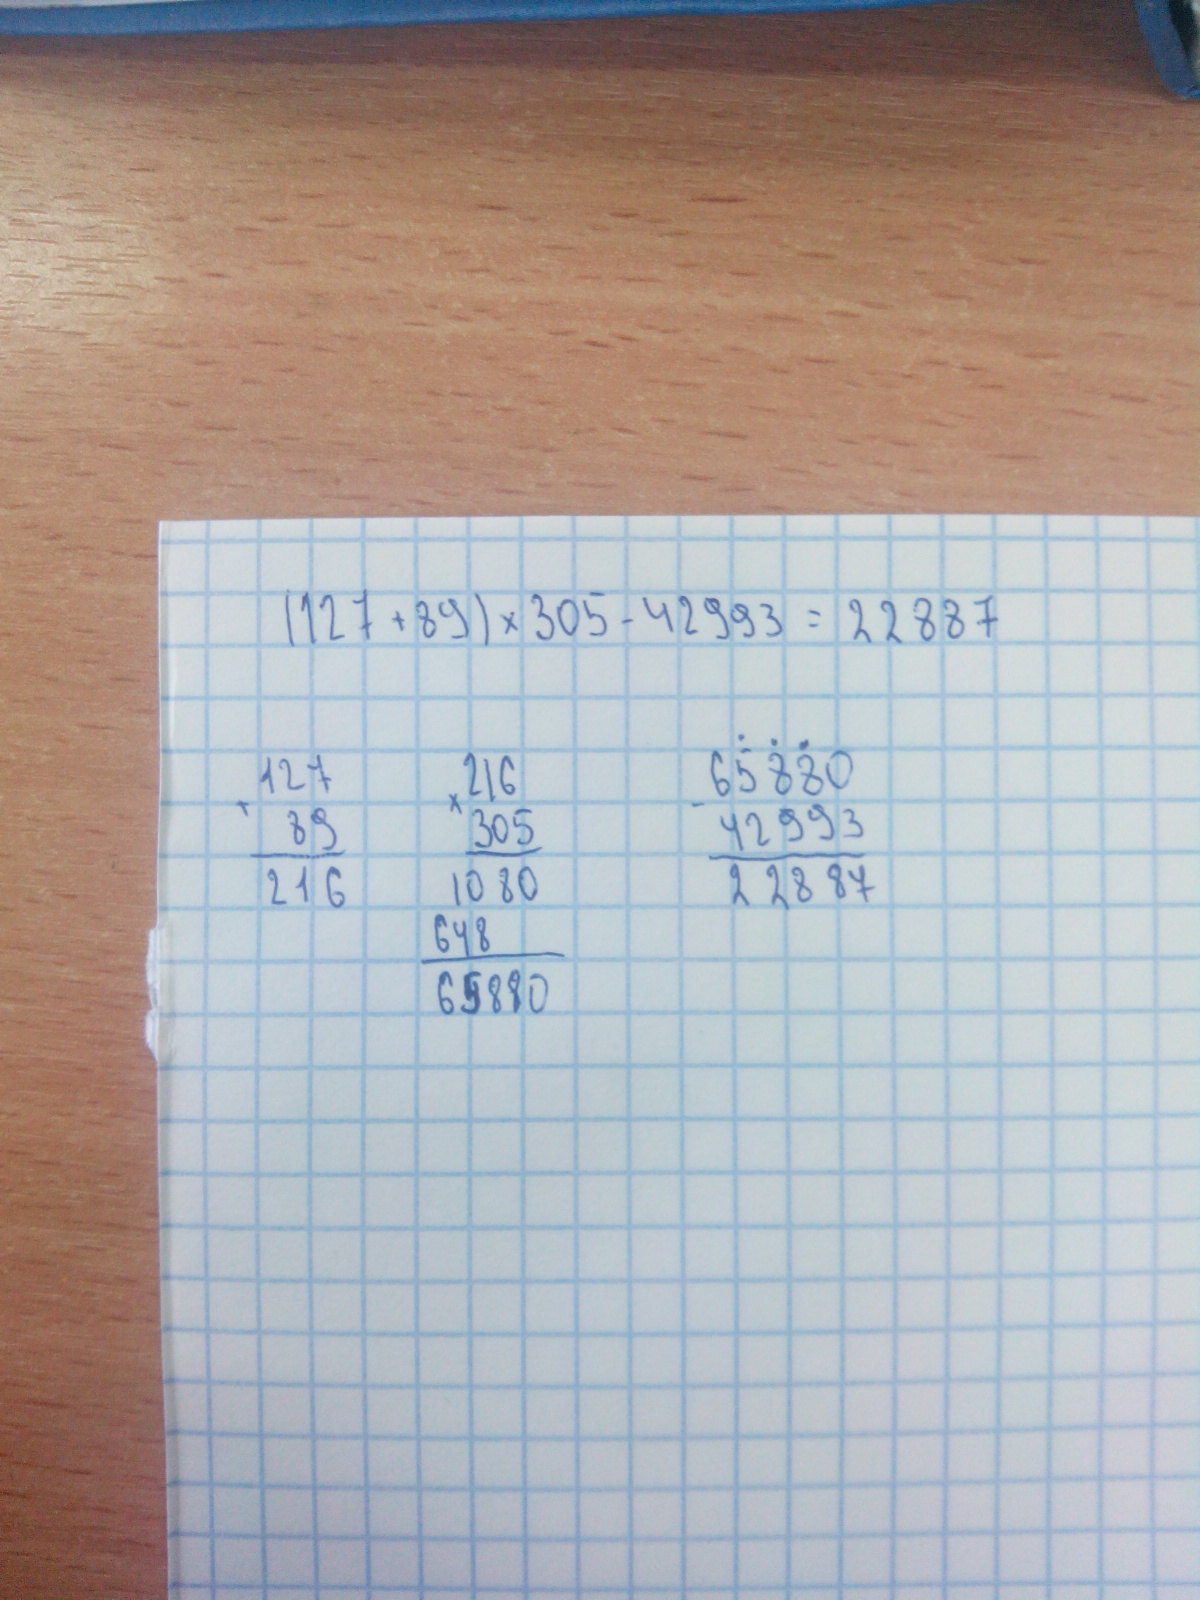 (127 + 89) × 305 - 42993 = 22887
127
+
89
216
216
×
305
1080
648
65880
65880
-
42993
22887